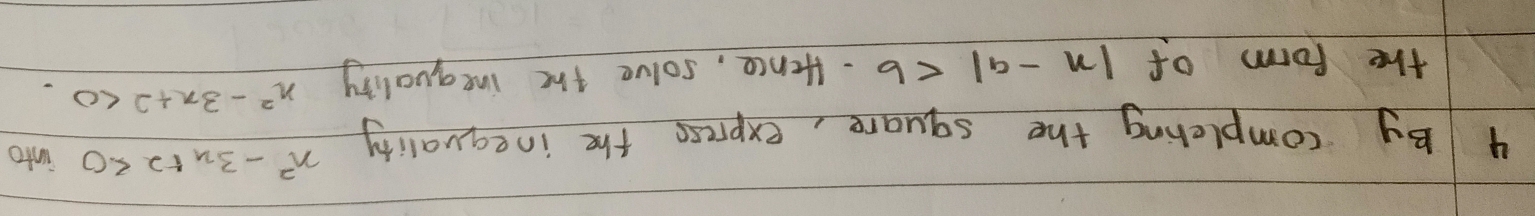 4 By completing the square, express the inequality x² - 3x + 2 < 0 into
the form of |x - a| < b. Hence, solve the inequality x² - 3x + 2 < 0.